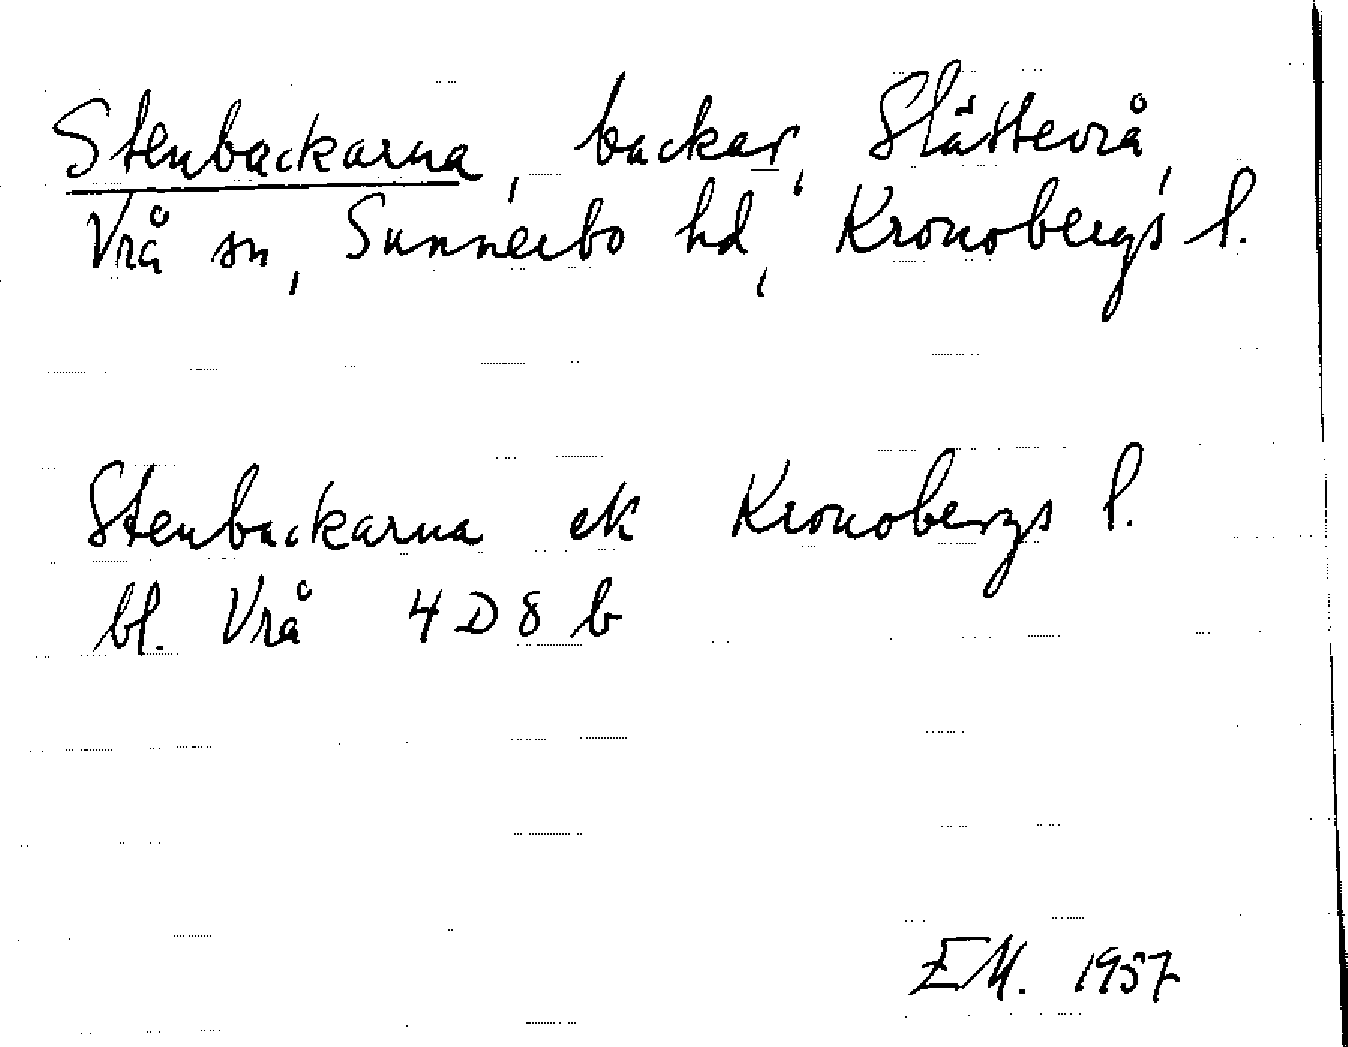 Stenbackarna, backar, Slättevrå,
Vrå sn, Sunnerbo hd, Kronobergs l.
Stenbackarna ek Kronobergs l.
bl. Vrå 4D8b
EM. 1957